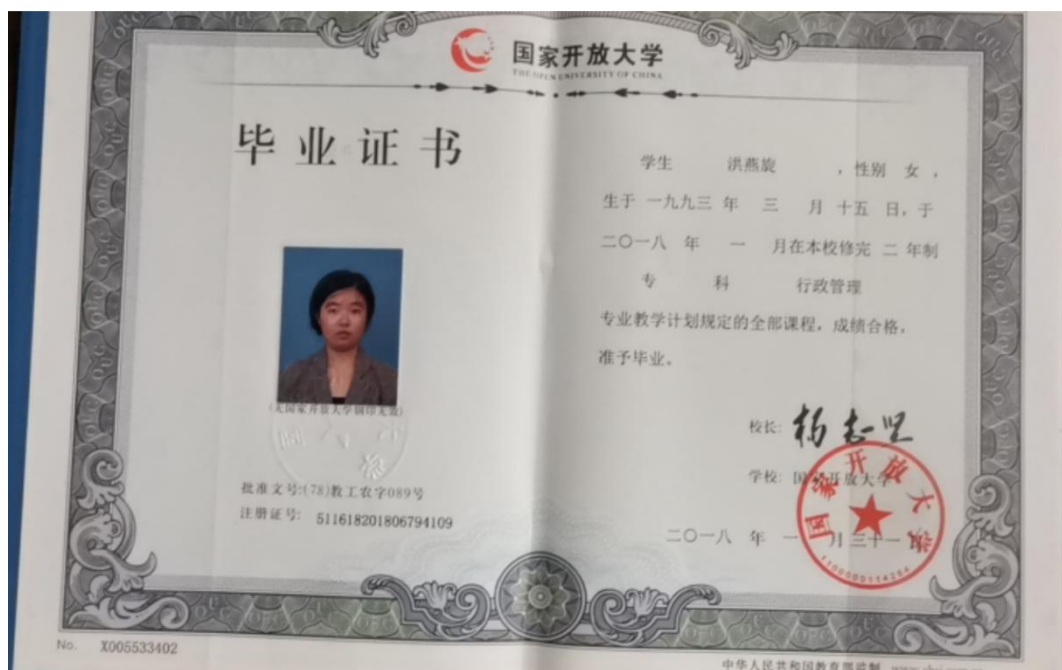 国家开放大学
THE OPEN UNIVERSITY OF CHINA
毕业证书
(无国家开放大学钢印无效)
批准文号:(78)教工农字089号
注册证号: 511618201806794109
学生 洪燕旋 ，性别 女 ，
生于 一九九三 年 三 月 十五 日，于
二〇一八 年 一 月在本校修完 二 年制
专 科 行政管理
专业教学计划规定的全部课程，成绩合格，
准予毕业。
校长: 杨志坚
学校: 国家开放大学
二〇一八 年 一 月三十一日
国家开放大学
1100000114284
No. X005533402
中华人民共和国教育部监制